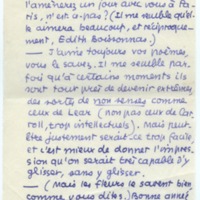 l'amènerez un jour avec vous à Pa-
ris, n'est-a-pas? (Il me semble qu'il
le aimera beaucoup, et réciproque-
ment, Edith Boissonnas.)
— J'aime toujours vos poèmes,
vous le savez. Il me semble par-
fois qu'à certains moments ils
sont tout près de devenir extrêmes,
des sorte de non-senses comme
ceux de Lear (non pas ceux de Car-
roll, trop intellectuels). Mais peut-
être justement serait-ce trop facile,
et c'est mieux de donner l'impres-
sion qu'on serait très capable d'y
glisser, sans y glisser.
— (Mais les fleurs le savent bien
comme vous dites. Bonne année